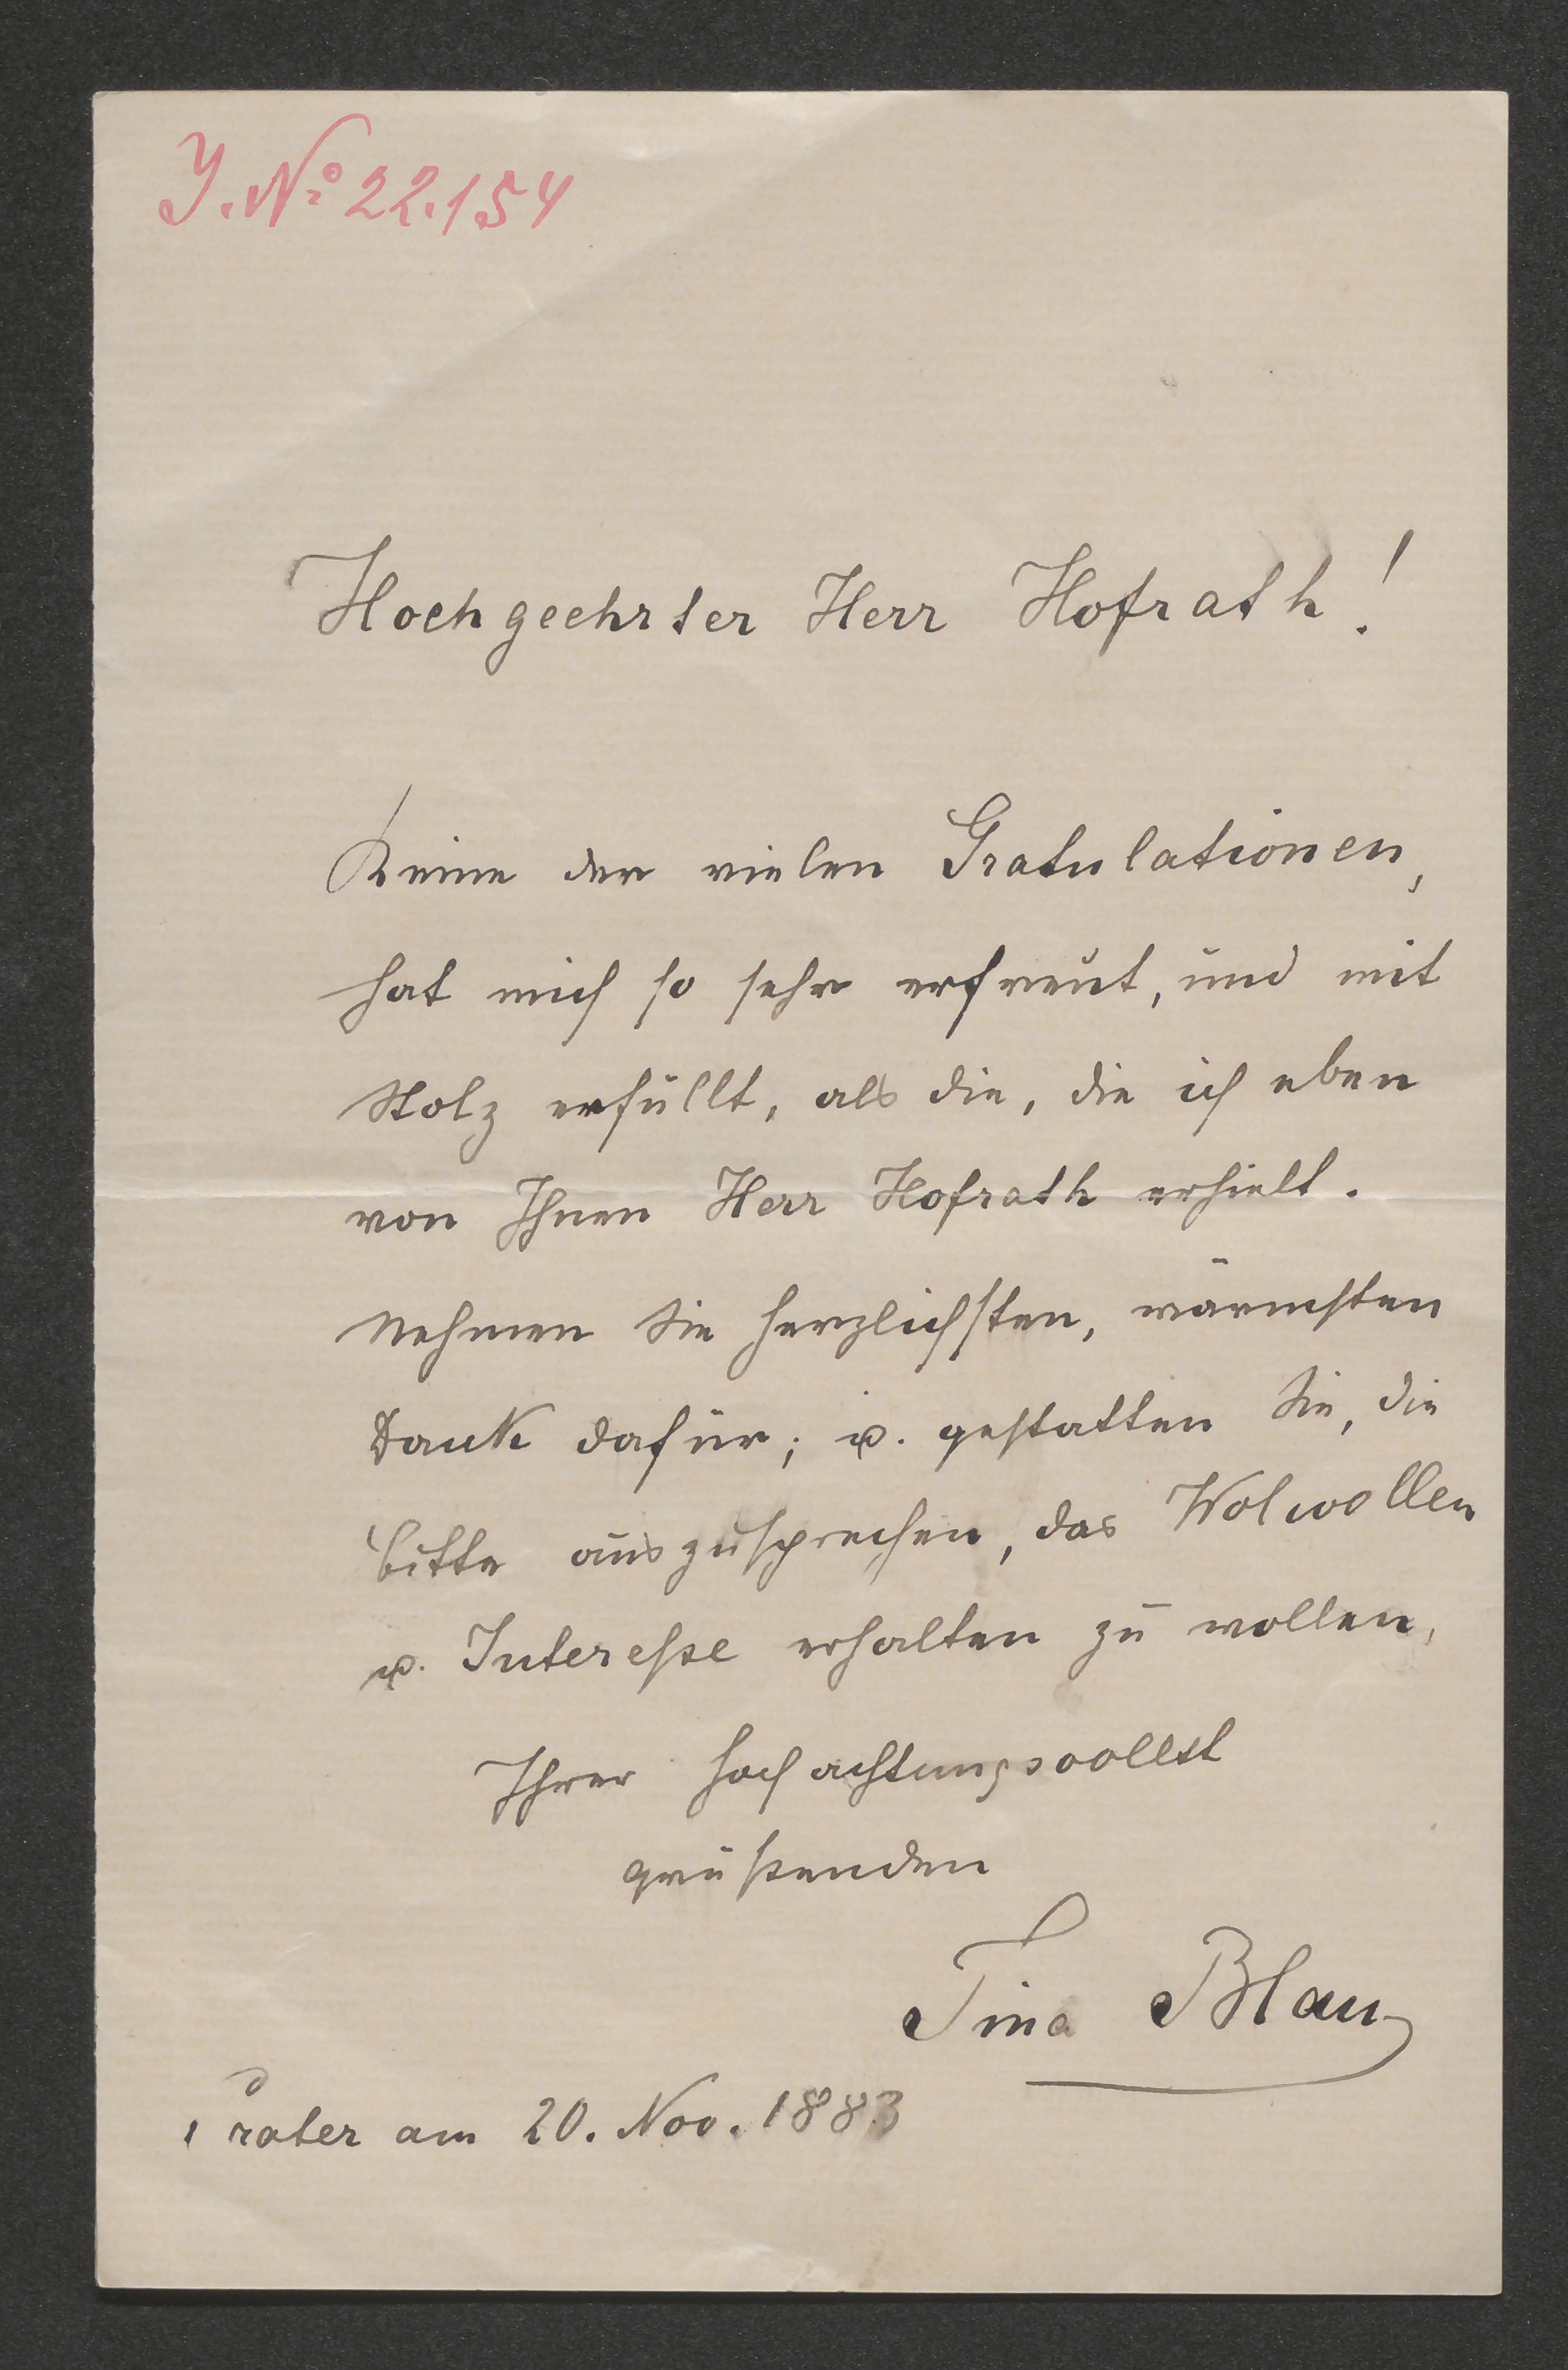 J. No 22.154
Hochgeehrter Herr Hofrath!
Keine der vielen Gratulationen,
hat mich so sehr erfreut, und mit
Stolz erfüllt, als die, die ich eben
von Ihnen Herr Hofrath erhielt.
Nehmen Sie herzlichsten, wärmsten
Dank dafür; u. gestatten Sie, die
Bitte auszusprechen, das Wolwollen
u. Intereße erhalten zu wollen,
Ihrer hochachtungsvollst
grüßenden
Tina Blau
Prater am 20. Nov. 1883